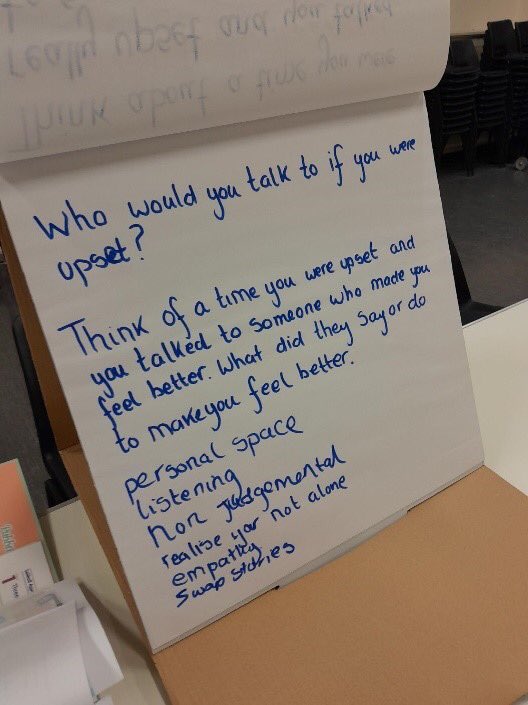 really upset and you talked
Think about a time you were
Who would you talk to if you were
upset?
Think of a time you were upset and
you talked to someone who made you
feel better. What did they say or do
to make you feel better.
personal space
listening
Non judgemental
realise your not alone
empathy
swap stories